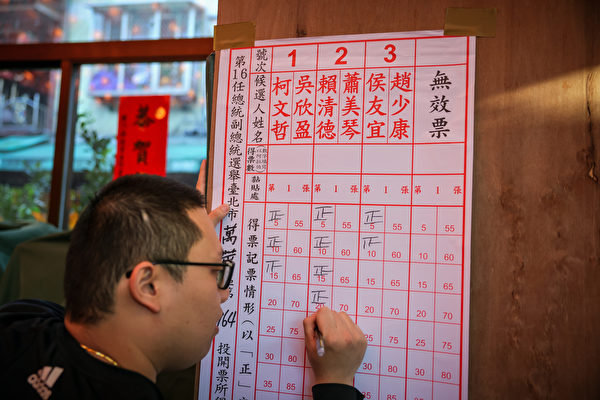 恭賀
第16任總統副總統選舉臺北市萬華
164投開票所得
號次 1 2 3
候選人姓名 柯文哲 吳欣盈 賴清德 蕭美琴 侯友宜 趙少康 無效票
得票數
黏貼處 第 1 張 第 1 張 第 1 張 第 1 張
得票記票情形(以「正」
正 5 55 正 5 55 正 5 55 5 55
正 10 60 正 10 60 10 60 10 60
15 65 正 15 65 15 65 15 65
20 70 正 20 70 20 70 20 70
25 75 75 25 75 25 75
30 80 30 80 30 80
35 85 35 85 35 85